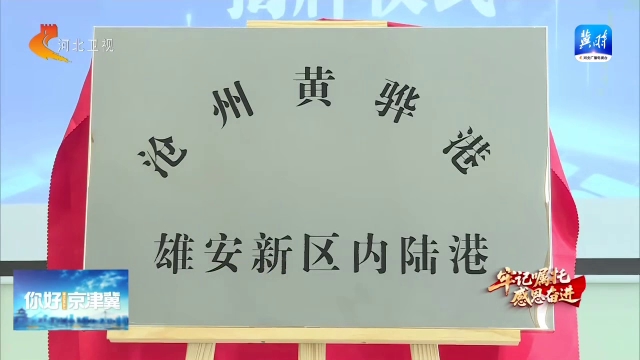 揭牌仪式
河北卫视
冀时
沧州黄骅港
雄安新区内陆港
你好!京津冀
牢记嘱托
感恩奋进